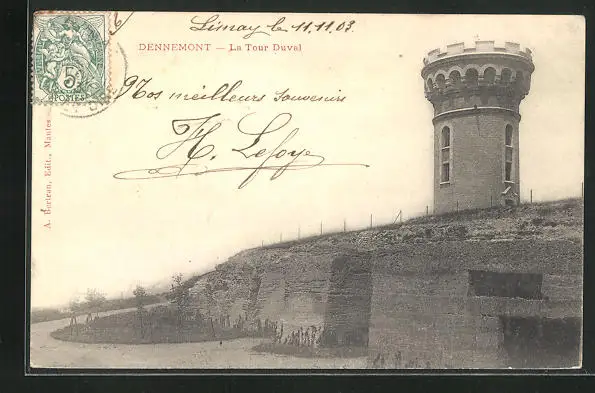 Limay le 11.11.03
DENNEMONT — La Tour Duval
Nos meilleurs souvenirs
H. Lefoye
A. Bertran, Edit., Mantes
5c
POSTES